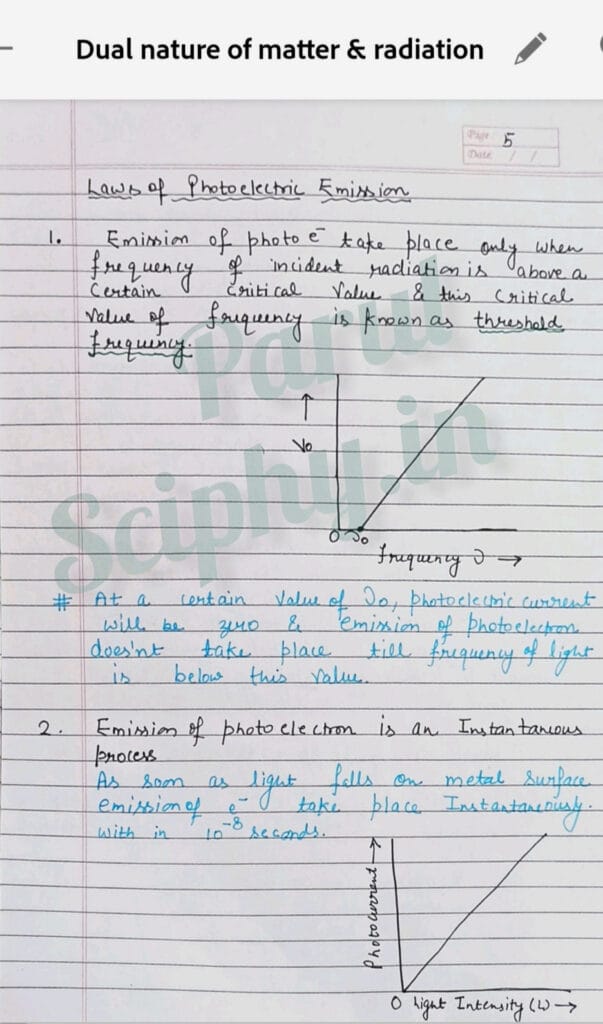 Dual nature of matter & radiation
Page 5
Date / /
Laws of Photoelectric Emission
1. Emission of photo e⁻ take place only when
frequency of incident radiation is above a
Certain Critical Value & this Critical
Value of frequency is known as threshold
frequency.
V₀
0 ν₀
frequency ν →
# At a certain Value of ν₀, photoelectric current
will be zero & emission of photoelectron
does'nt take place till frequency of light
is below this Value.
2. Emission of photo electron is an Instantaneous
process
As soon as light falls on metal surface
emission of e⁻ take place Instantaneously.
with in 10⁻⁸ seconds.
Photocurrent →
0 light Intensity (L) →
Parul
Sciphy.in